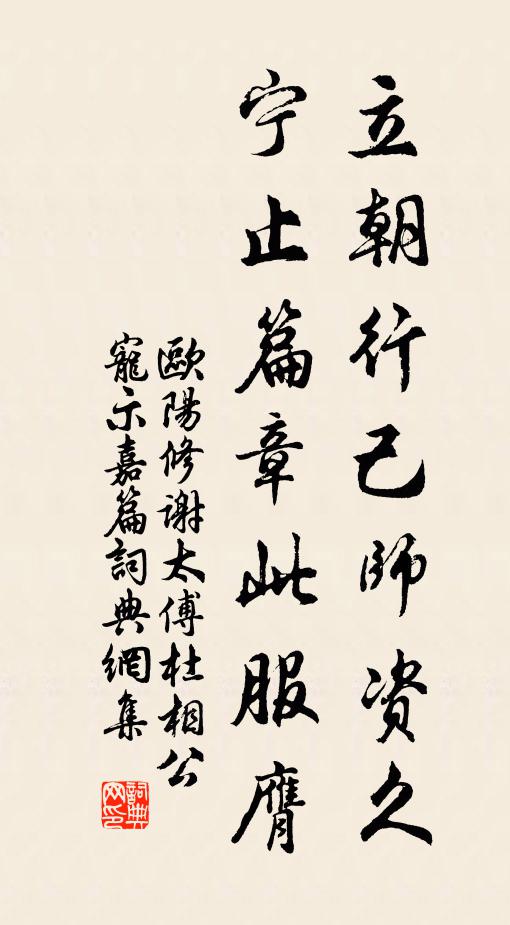 立朝行己師资久
宁止篇章此服膺
歐陽修谢太傅杜相公
寵示嘉篇詞典網集
詞典网印